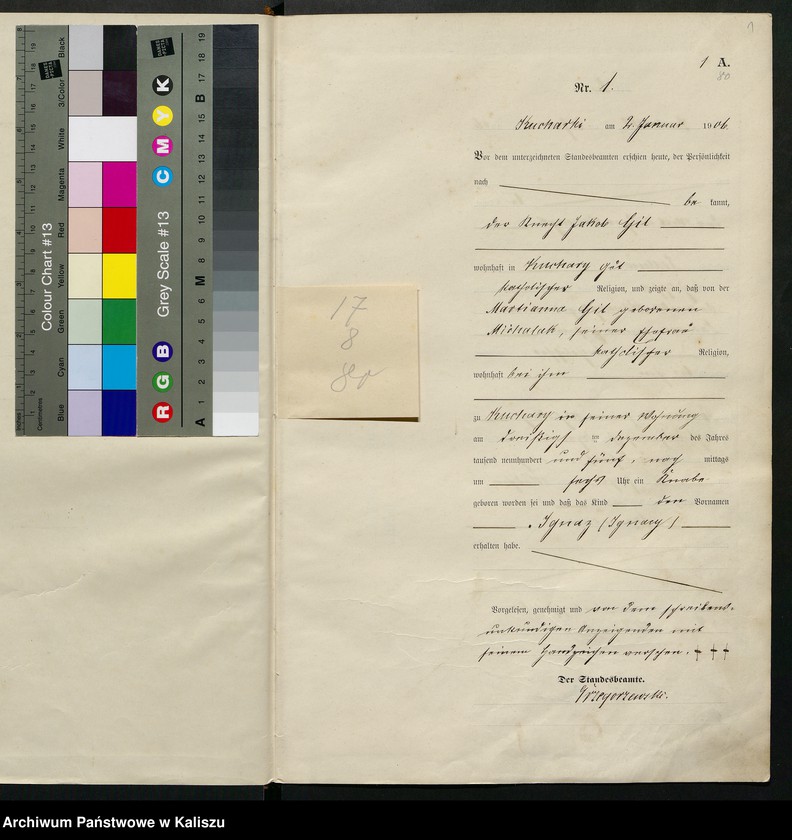 1
1 A.
80
Nr. 1.
Kucharki am 2. Januar 1906.
Vor dem unterzeichneten Standesbeamten erschien heute, der Persönlichkeit
nach
be kannt,
der Knecht Jakob Gil
wohnhaft in Kuchary gut
katholischer Religion, und zeigte an, daß von der
Marianna Gil geborenen
Michalak, seiner Ehefrau
katholischer Religion,
wohnhaft bei ihm
zu Kuchary in seiner Wohnung
am dreißigst en Dezember des Jahres
tausend neunhundert und fünf, nach mittags
um sechs Uhr ein Knabe
geboren worden sei und daß das Kind den Vornamen
Ignaz (Ignacy)
erhalten habe.
Vorgelesen, genehmigt und von dem schreibens-
unkundigen Anzeigenden mit
seinem Handzeichen versehen. + + +
Der Standesbeamte.
Grzegorzewski.
17
8
80
Colour Chart #13
Blue
Cyan
Green
Yellow
Red
Magenta
White
3/Color
Black
Inches
Centimetres
Grey Scale #13
R G B
C M Y K
A 1 2 3 4 5 6 M 8 9 10 11 12 13 14 15 B 17 18 19
Archiwum Państwowe w Kaliszu